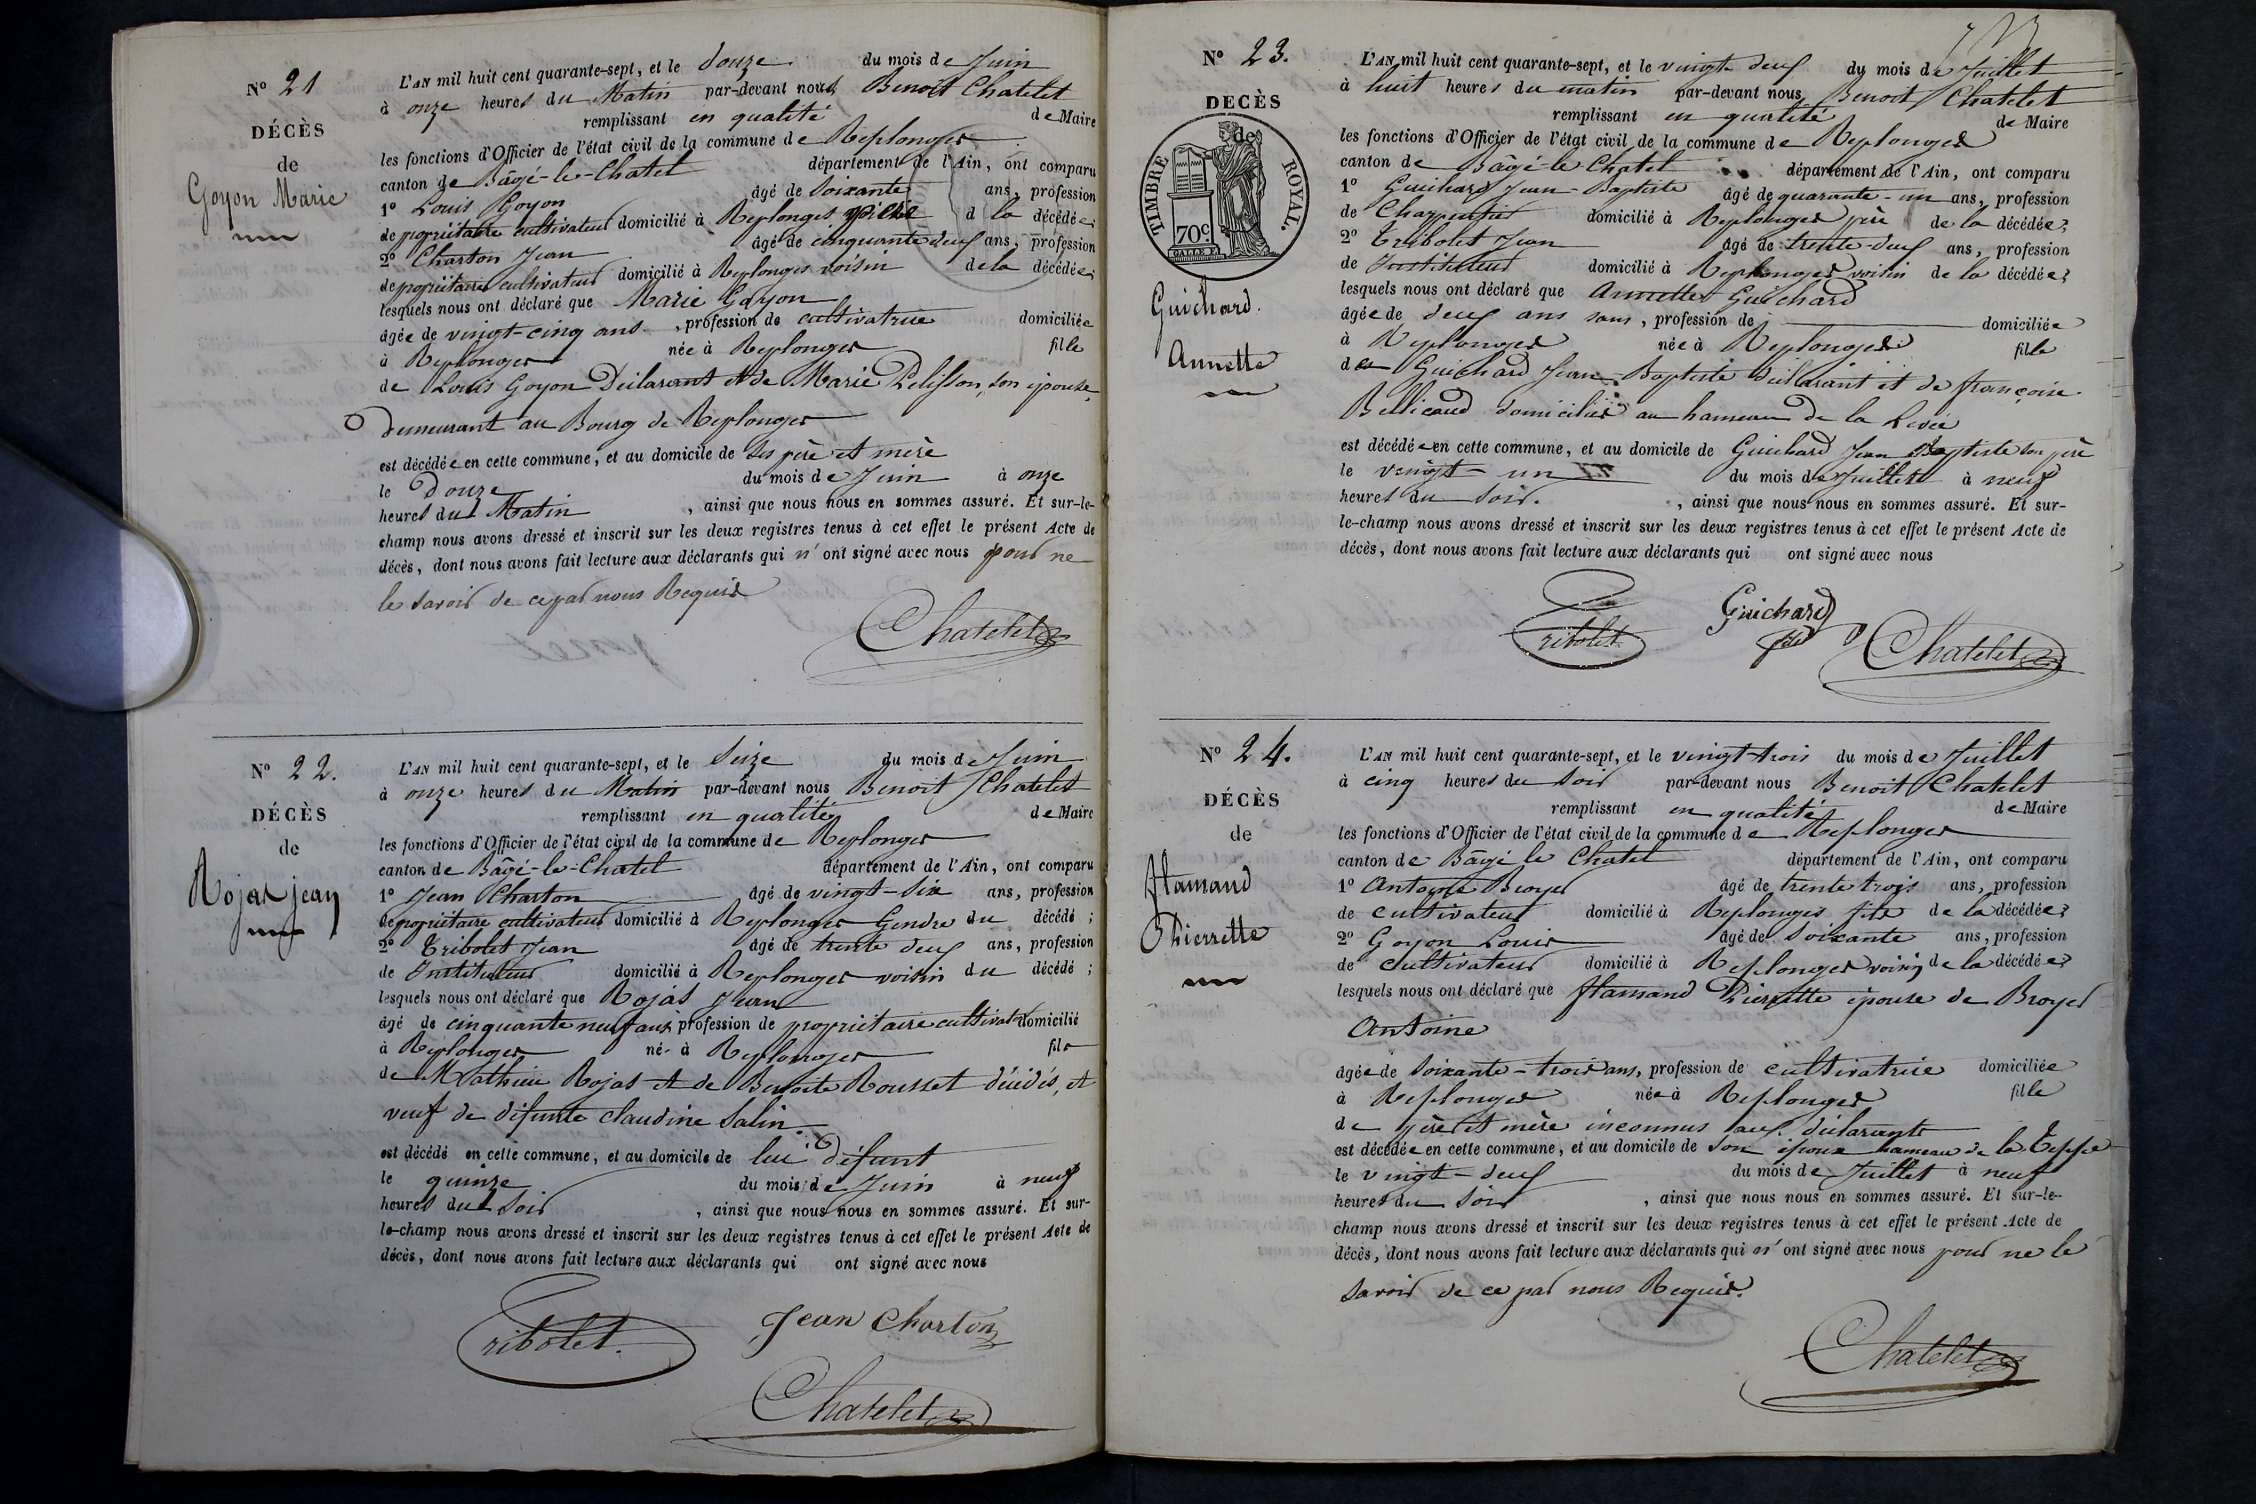 N° 21
DÉCÈS
de
Goyon Marie
L'AN mil huit cent quarante-sept, et le douze du mois de Juin
à onze heures du Matin par-devant nous Benoit Chatelet
remplissant en qualité de Maire
les fonctions d'Officier de l'état civil de la commune de Replonges
canton de Bâgé-le-Chatel département de l'Ain, ont comparu
1° Louis Goyon âgé de soixante ans, profession
de propriétaire cultivateur domicilié à Replonges père d la décédée;
2° Charton Jean âgé de cinquante deux ans, profession
de propriétaire cultivateur domicilié à Replonges voisin de la décédée;
lesquels nous ont déclaré que Marie Goyon
âgée de vingt-cinq ans, profession de cultivatrice domiciliée
à Replonges née à Replonges fille
de Louis Goyon Déclarant et de Marie Pelisson, son épouse,
Demeurant au Bourg de Replonges
est décédée en cette commune, et au domicile de ses père et mère
le Douze du mois de Juin à onze
heures du Matin, ainsi que nous nous en sommes assuré. Et sur-le-
champ nous avons dressé et inscrit sur les deux registres tenus à cet effet le présent Acte de
décès, dont nous avons fait lecture aux déclarants qui n'ont signé avec nous pour ne
le savoir de ce par nous Requis
Chatelet
N° 22.
DÉCÈS
de
Rojas jean
L'AN mil huit cent quarante-sept, et le seize du mois de Juin
à onze heures du Matin par-devant nous Benoit Chatelet
remplissant en qualité de Maire
les fonctions d'Officier de l'état civil de la commune de Replonges
canton de Bâgé-le-Chatel département de l'Ain, ont comparu
1° Jean Charton âgé de vingt-six ans, profession
de propriétaire cultivateur domicilié à Replonges Gendre du décédé;
2° Tribolet Jean âgé de trente deux ans, profession
de Instituteur domicilié à Replonges voisin du décédé;
lesquels nous ont déclaré que Rojas Jean
âgé de cinquante neuf ans, profession de propriétaire cultivatr domicilié
à Replonges né à Replonges fils
de Mathieu Rojas et de Benoite Rousset décédés, et
veuf de défunte claudine Salin
est décédé en cette commune, et au domicile de lui défunt
le quinze du mois de Juin à neuf
heures du Soir, ainsi que nous nous en sommes assuré. Et sur-
le-champ nous avons dressé et inscrit sur les deux registres tenus à cet effet le présent Acte de
décès, dont nous avons fait lecture aux déclarants qui ont signé avec nous
Tribolet. Jean Charton
Chatelet
N° 23.
DECÈS
de
TIMBRE ROYAL.
70c
Guichard.
Annette
L'AN mil huit cent quarante-sept, et le vingt deux du mois de Juillet
à huit heures du matin par-devant nous Benoit Chatelet
remplissant en qualité de Maire
les fonctions d'Officier de l'état civil de la commune de Replonges
canton de Bâgé-le Chatel département de l'Ain, ont comparu
1° Guichard Jean-Baptiste âgé de quarante-un ans, profession
de Charpentier domicilié à Replonges père de la décédée;
2° Tribolet Jean âgé de trente-deux ans, profession
de Instituteur domicilié à Replonges voisin de la décédée;
lesquels nous ont déclaré que Annette Guichard
âgée de deux ans sans, profession de domiciliée
à Replonges née à Replonges fille
de Guichard Jean-Baptiste déclarant et de françoise
Bellicaud domiciliés au hameau de la Levée
est décédée en cette commune, et au domicile de Guichard Jean Baptiste son père
le vingt-un du mois de Juillet à neuf
heures du soir., ainsi que nous nous en sommes assuré. Et sur-
le-champ nous avons dressé et inscrit sur les deux registres tenus à cet effet le présent Acte de
décès, dont nous avons fait lecture aux déclarants qui ont signé avec nous
Tribolet Guichard
Chatelet
N° 24.
DÉCÈS
de
flamand
Pierrette
L'AN mil huit cent quarante-sept, et le vingt-trois du mois de Juillet
à cinq heures du soir par-devant nous Benoit Chatelet
remplissant en qualité de Maire
les fonctions d'Officier de l'état civil de la commune de Replonges
canton de Bâgé le Chatel département de l'Ain, ont comparu
1° Antoine Broyer âgé de trente trois ans, profession
de cultivateur domicilié à Replonges fils de la décédée;
2° Goyon Louis âgé de soixante ans, profession
de cultivateur domicilié à Replonges voisin de la décédée;
lesquels nous ont déclaré que flamand Pierrette épouse de Broyer
Antoine
âgée de soixante-trois ans, profession de cultivatrice domiciliée
à Replonges née à Replonges fille
de père et mère inconnus aux déclarants
est décédée en cette commune, et au domicile de son époux hameau de la Teppe
le vingt-deux du mois de Juillet à neuf
heures du soir, ainsi que nous nous en sommes assuré. Et sur-le-
champ nous avons dressé et inscrit sur les deux registres tenus à cet effet le présent Acte de
décès, dont nous avons fait lecture aux déclarants qui n'ont signé avec nous pour ne le
savoir de ce par nous Requis.
Chatelet